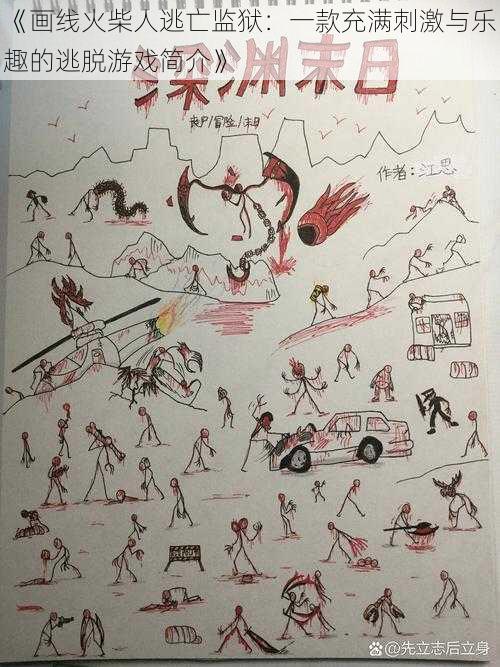 《画线火柴人逃亡监狱：一款充满刺激与乐
趣的逃脱游戏简介》
深渊末日
丧尸/冒险/末日
作者：江思
@先立志后立身